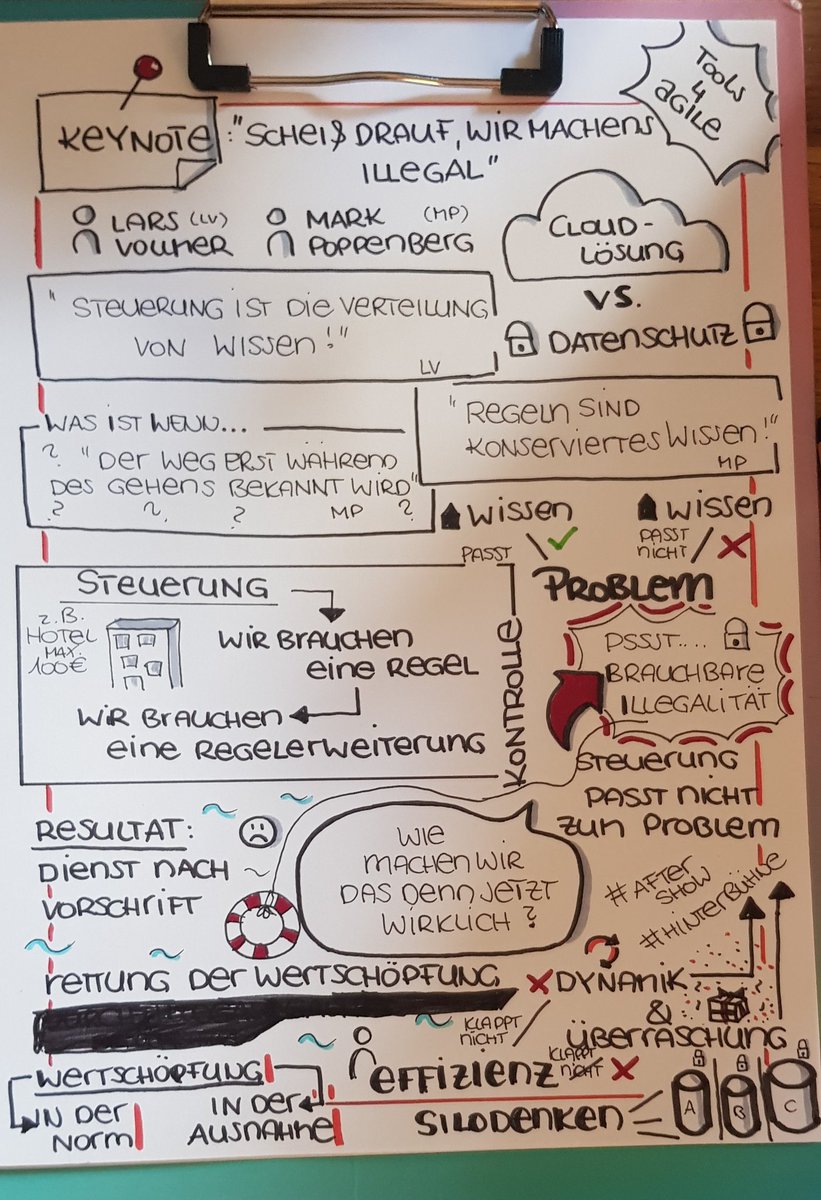 TOOLS
4
agile
KEYNOTE: "SCHEIß DRAUF, WIR MACHENS
ILLEGAL"
LARS (LV)
VOLLMER
MARK (MP)
POPPENBERG
CLOUD-
LÖSUNG
VS.
DATENSCHUTZ
"STEUERUNG IST DIE VERTEILUNG
VON WISSEN!"
LV
"REGELN SIND
KONSERVIERTES WISSEN!"
MP
WAS IST WENN...
? "DER WEG ERST WÄHREND
DES GEHENS BEKANNT WIRD"
? ? ? MP ?
WISSEN
PASST
WISSEN
PASST
NICHT
PROBLEM
STEUERUNG
z.B.
HOTEL
MAX.
100€
WIR BRAUCHEN
EINE REGEL
WIR BRAUCHEN
EINE REGELERWEITERUNG
KONTROLLE
PSSJT....
BRAUCHBARE
ILLEGALITÄT
STEUERUNG
PASST NICHT
ZUM PROBLEM
RESULTAT:
DIENST NACH
VORSCHRIFT
WIE
MACHEN WIR
DAS DENN JETZT
WIRKLICH?
#AFTER
SHOW
#HINTERBÜHNE
RETTUNG DER WERTSCHÖPFUNG
DYNAMIK
&
ÜBERRASCHUNG
KLAPPT
NICHT
WERTSCHÖPFUNG
IN DER
NORM
IN DER
AUSNAHME
EFFIZIENZ
KLAPPT
NICHT
SILODENKEN
A
B
C